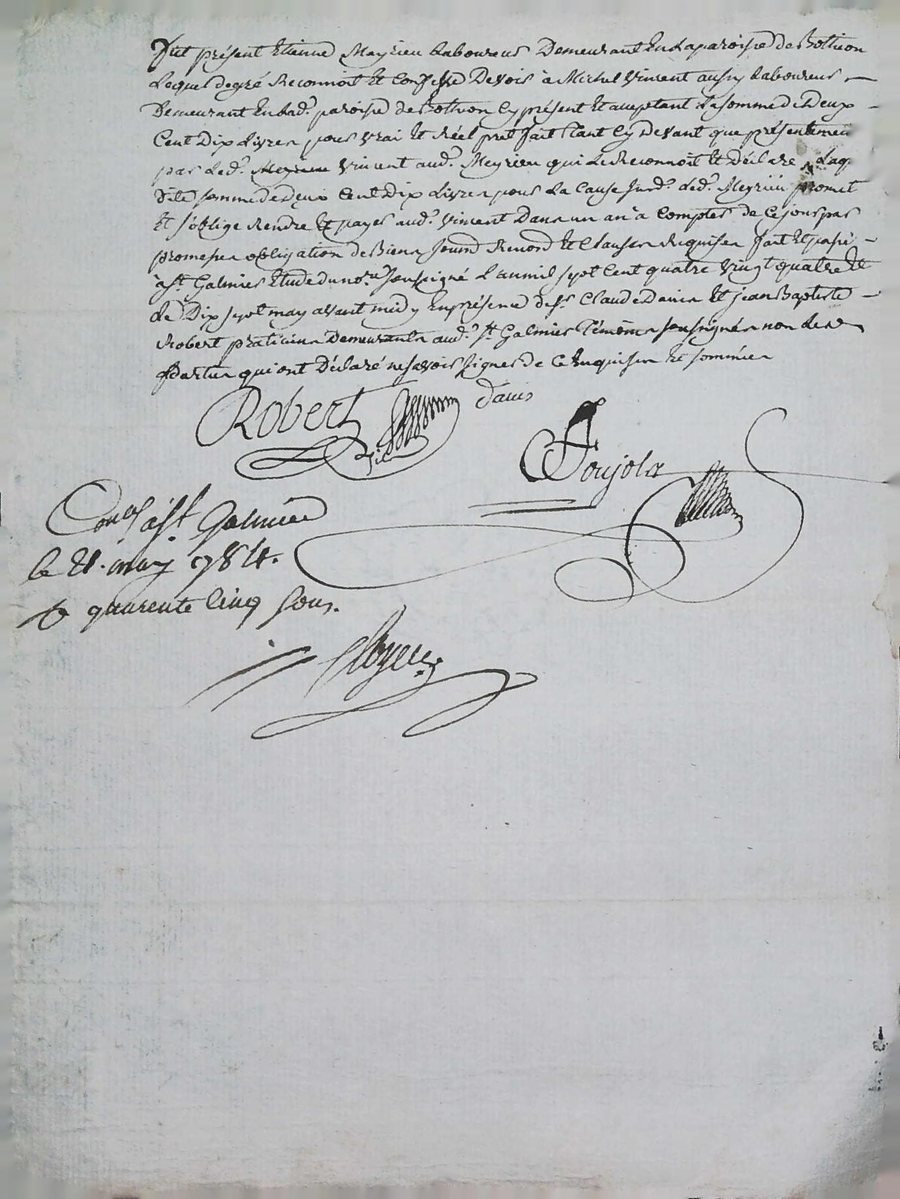 Fut présent Etienne Meyrieu Laboureur Demeurant En La paroisse de Bothéon
Lequel de gré Reconnoit Et Confesse Devoir à Michel Vincent aussy Laboureur
Demeurant En Lad. paroisse de Bothéon Cy présent Et acceptant La somme de Deux
Cent Dix Livres pour Vrai Et Réel pret fait Tant Cy Devant que présentement
par Led. Meyrieu Vincent aud. Meyrieu qui Le Reconnoit Et Déclare Laq
dite somme de Deux Cent Dix Livres pour La Cause Susd. Led. Meyrieu promet
Et s'oblige Rendre Et payer aud. Vincent Dans un an à Compter de Ce jour par
promesse obligation de Biens Renond Et Clauses Requises fait Et passé
à St. Galmier Etude du no.re soussigné L'an mil sept Cent quatre Vingt quatre Et
Le Dix sept may avant midy En présence de Claude Davin Et jean Baptiste
Robert praticien Demeurants aud. St. Galmier Témoins soussignés non Les
parties qui ont Déclaré ne savoir signer de Ce Enquises Et sommées
Robert
Poujola
Con.lé à St. Galmier
le 21. may 1784.
quarente cinq sous.